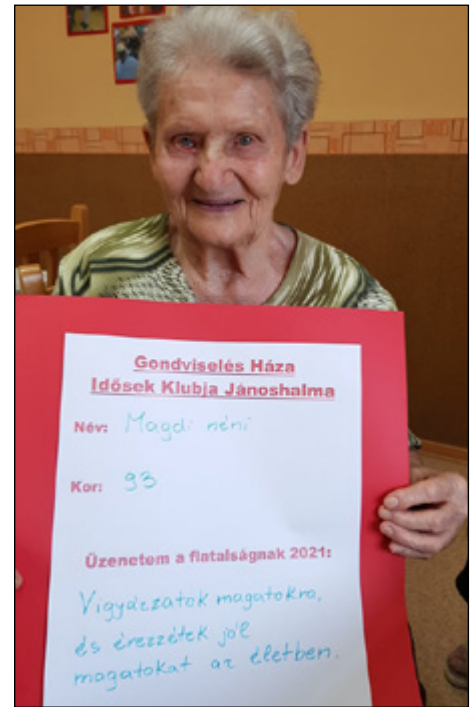 Gondviselés Háza
Idősek Klubja Jánoshalma
Név: Magdi néni
Kor: 93
Üzenetem a fiatalságnak 2021:
Vigyázzatok magatokra,
és érezzétek jól
magatokat az életben.